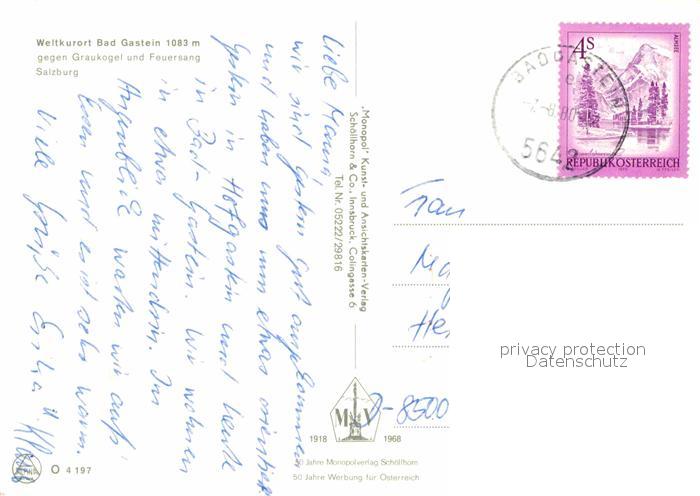 Weltkurort Bad Gastein 1083 m
gegen Graukogel und Feuersang
Salzburg
Liebe Mama,
wir sind gestern gut angekommen
und haben uns nun etwas orientiert.
Gestern in Hofgastein und heute
in Bad-Gastein. Wir wohnen
in etwa mittendrin. Im
Augenblick warten wir aufs
Essen und es ist sehr warm.
Viele Grüße Erika u. Klaus
O 4197
"Monopol" Kunst- und Ansichtskarten-Verlag
Schöllhorn & Co., Innsbruck, Colingasse 6
Tel. Nr. 05222/29816
4S
ALMSEE
REPUBLIK ÖSTERREICH
BADGASTEIN
5642
Frau
D-8500
M V
1918 1968
50 Jahre Monopolverlag Schöllhorn
50 Jahre Werbung für Österreich
privacy protection
Datenschutz